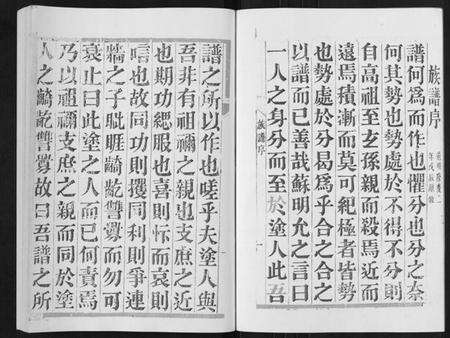 族譜序
譜何爲而作也懼分也分之奈
何其勢也勢處於不得不分則
自高祖至玄孫親而殺焉近而
遠焉積漸而莫可紀極者皆勢
也勢處於分曷爲乎合之合之
以譜而已善哉蘇明允之言曰
一人之身分而至於塗人此吾
族譜序
譜之所以作也嗟乎夫塗人與
吾非有祖禰之親也支庶之近
也期功緦服也喜則忭而哀則
唁也故同功則攫同利則爭連
牆之子眦睚齮齕讐釁而勿可
哀止曰此塗之人而已何責焉
乃以祖禰支庶之親而同於塗
人之齮齕讐釁故曰吾譜之所